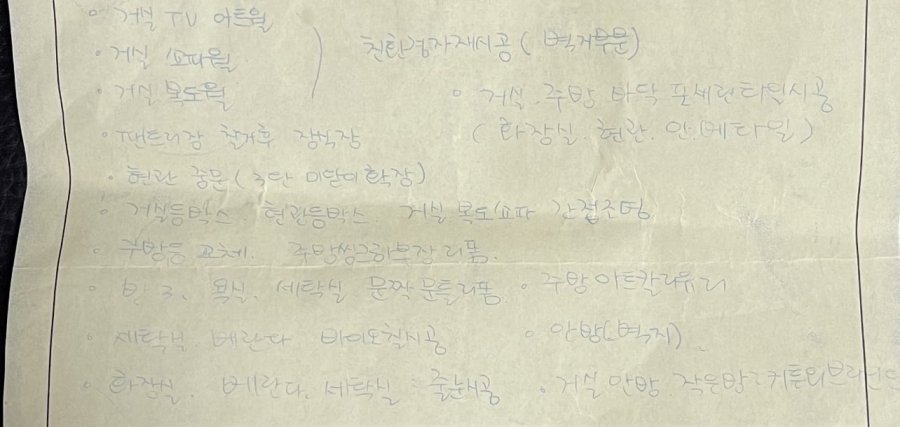 ◦ 거실 TV 아트월
◦ 거실 쇼파월
친환경자재시공 (벽 부문)
◦ 거실 복도월
◦ 거실. 주방 바닥 포세린타일시공
◦ 팬트리장 철거후 장식장
(화장실. 현관. 베타일)
◦ 현관 중문 (3단 미닫이 확장)
◦ 거실등박스. 현관등박스 거실 복도 쇼파 간접조명
◦ 주방등 교체. 주방씽크하부장 리폼.
◦ 방 3. 욕실. 세탁실 문짝 문틀리폼
◦ 주방아트칼라유리
◦ 세탁실 베란다 바이오칠시공
◦ 안방(벽지)
◦ 화장실. 베란다. 세탁실 줄눈시공
◦ 거실 안방. 작은방2